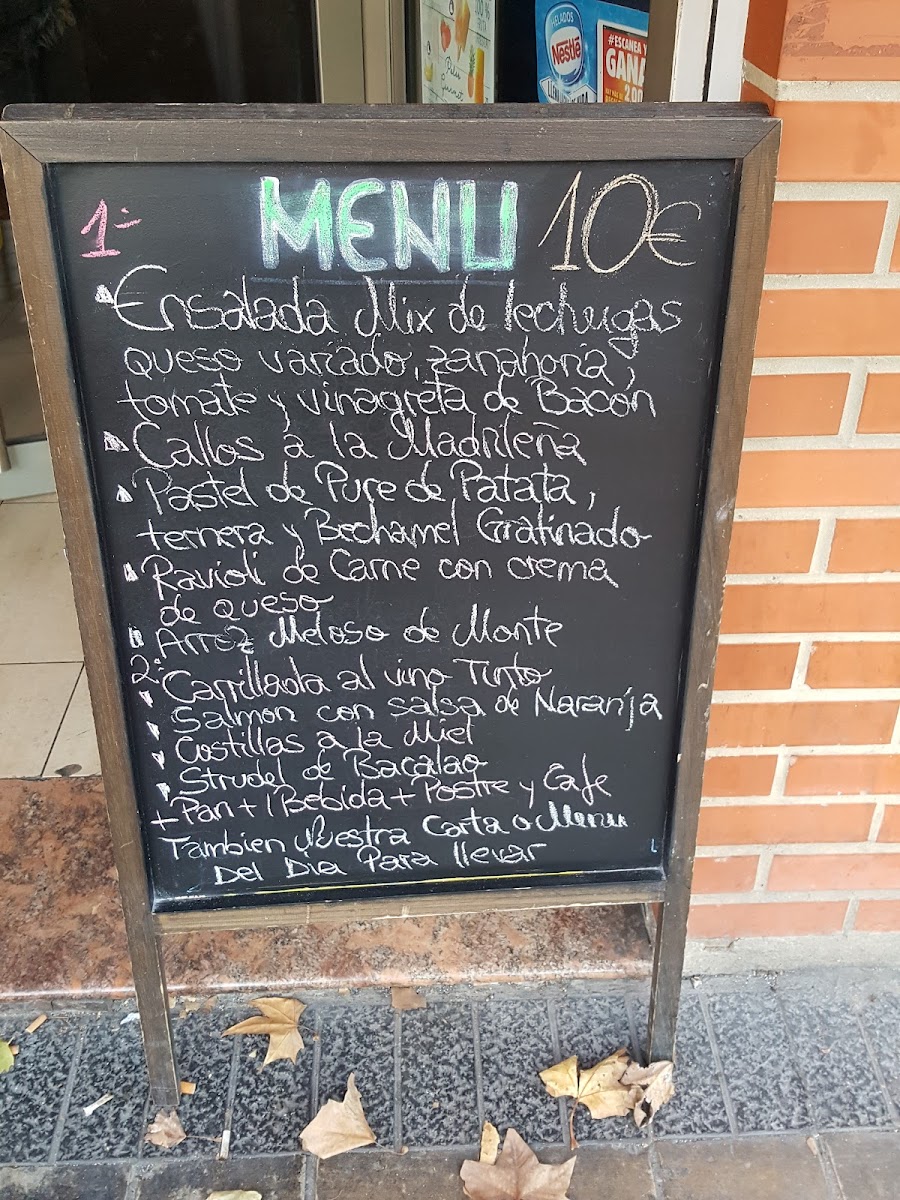 HELADOS
Nestlé
#ESCANEA Y
GANA
MENU 10€
1-
Ensalada Mix de lechugas
queso variado, zanahoria,
tomate y vinagreta de Bacon
Callos a la Madrileña
Pastel de Pure de Patata,
ternera y Bechamel Gratinado
Ravioli de Carne con crema
de queso
Arroz Meloso de Monte
2-
Carrillada al vino Tinto
Salmon con salsa de Naranja
Costillas a la Miel
Strudel de Bacalao
+Pan+1Bebida+Postre y Cafe
Tambien Nuestra Carta o Menu
Del Dia Para llevar